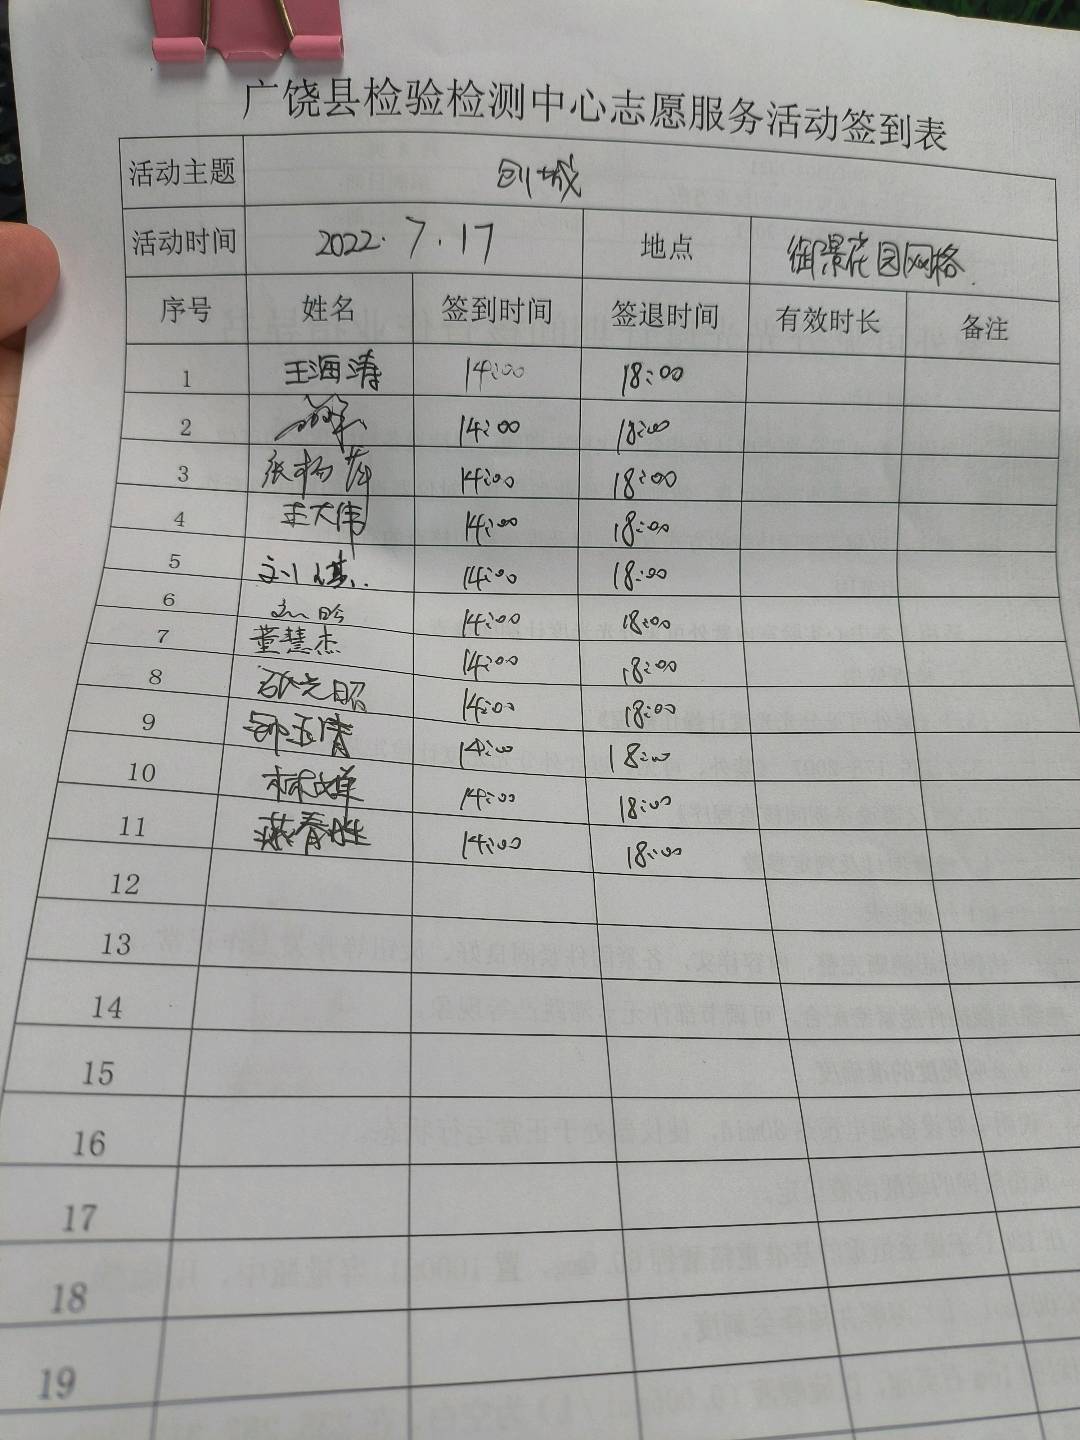 广饶县检验检测中心志愿服务活动签到表
活动主题 创城
活动时间 2022.7.17 地点 御景花园网格
序号 姓名 签到时间 签退时间 有效时长 备注
1 王海涛 14:00 18:00
2 14:00 18:00
3 张杨萍 14:00 18:00
4 王大伟 14:00 18:00
5 刘 14:00 18:00
6 14:00 18:00
7 董慧杰 14:00 18:00
8 14:00 18:00
9 14:00 18:00
10 14:00 18:00
11 燕春胜 14:00 18:00
12
13
14
15
16
17
18
19